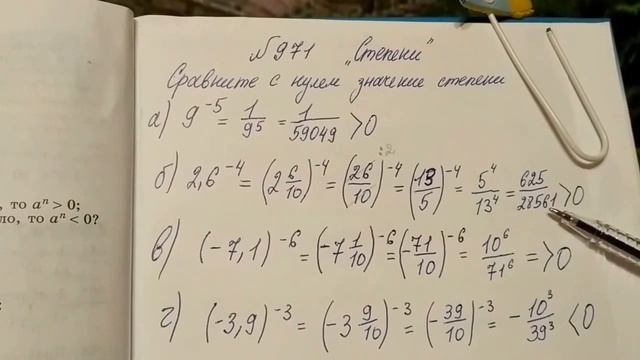 №971 "Степени"
Сравните с нулем значение степени
а) 9^-5 = 1/9^5 = 1/59049 > 0
:2
б) 2,6^-4 = (2 6/10)^-4 = (26/10)^-4 = (13/5)^-4 = 5^4/13^4 = 625/28561 > 0
, то a^n > 0;
ло, то a^n < 0?
в) (-7,1)^-6 = (-7 1/10)^-6 = (-71/10)^-6 = 10^6/71^6 = > 0
г) (-3,9)^-3 = (-3 9/10)^-3 = (-39/10)^-3 = -10^3/39^3 < 0